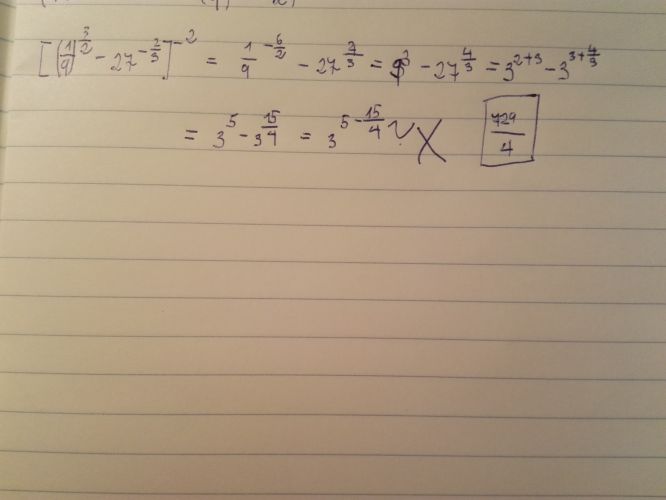 [(1/9)^(3/2) - 27^(-2/3)]^-2 = 1/9^(-6/2) - 27^(2/3) = 9^3 - 27^(4/3) = 3^(2+3) - 3^(3+4/3)
= 3^5 - 3^(15/4) = 3^(5-15/4) ? X 729/4